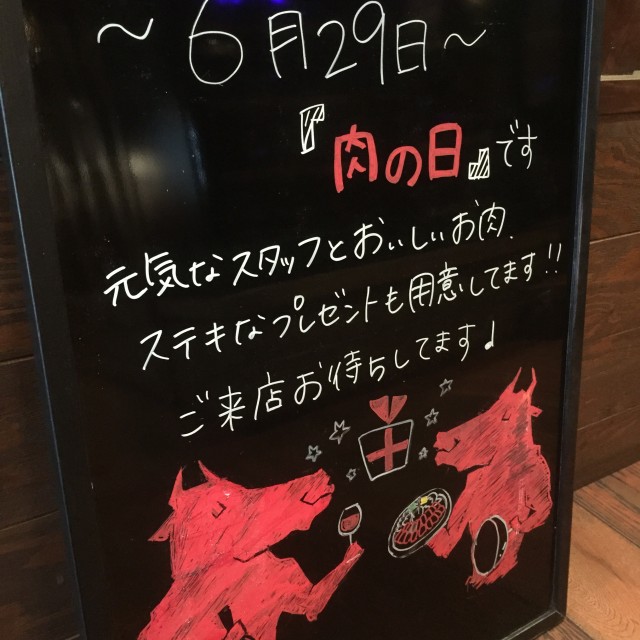 ～6月29日～
『肉の日』です
元気なスタッフとおいしいお肉、
ステキなプレゼントも用意してます!!
ご来店お待ちしてます♩